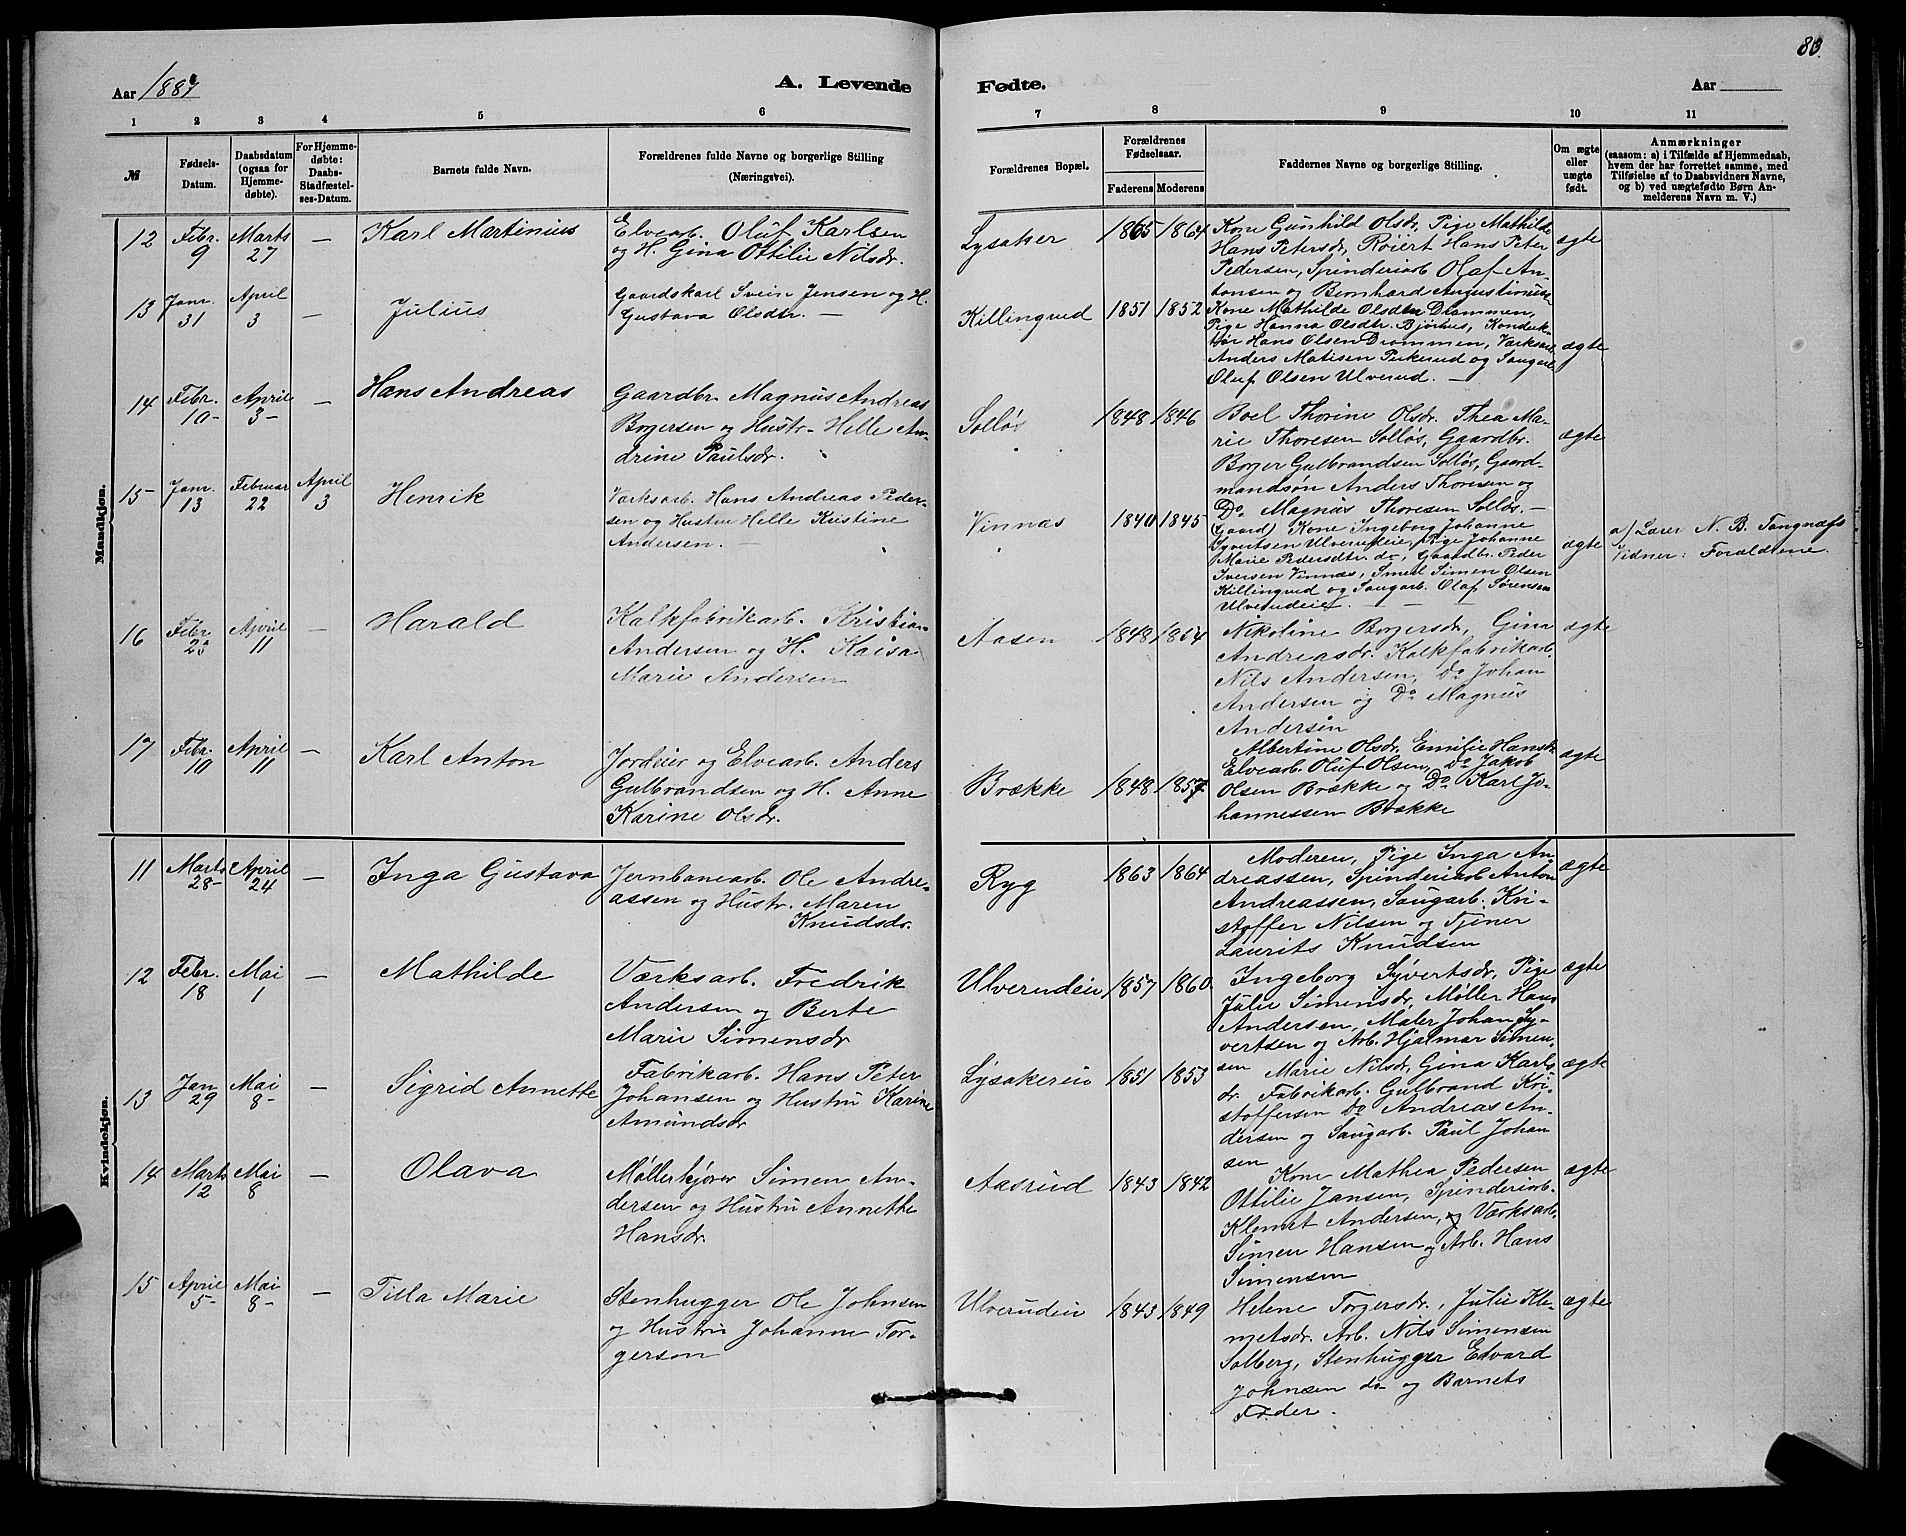 Aar 1887
A. Levende
1 2 3 4 5 6
№
Fødsels-
Datum.
Daabsdatum
(ogsaa for
Hjemme-
døbte).
For Hjemme-
døbte:
Daabs-
Stadfæstel-
ses-Datum.
Barnets fulde Navn.
Forældrenes fulde Navne og borgerlige Stilling
(Næringsvei).
Mandkjøn.
12 Febr. 9 Marts 27 — Karl Martinius
Elvearb. Oluf Karlsen
og H. Gina Ottilie Nilsdr.
13 Janr. 31 April 3 — Julius
Gaardskarl Svein Jensen og H.
Gustava Olsdtr. —
14 Febr. 10 April 3 — Hans Andreas
Gaardbr. Magnus Andreas
Borgersen og Hustr. Helle An-
drine Paulsdr.
15 Janr. 13 Februar 22 April 3 Henrik
Værksarb. Hans Andreas Peder-
sen og Hustru Helle Kristine
Andersen. —
16 Febr. 23 April 11 — Harald
Kalkfabrikarb. Kristian
Andersen og H. Kaisa
Marie Andersen
17 Febr. 10 April 11 — Karl Anton
Jordeier og Elvearb. Anders
Gulbrandsen og H. Anne
Karine Olsdr.
Kvindekjøn.
11 Marts 28 April 24 — Inga Gustava
Jernbanearb. Ole Andre-
assen og Hustr. Maren
Knudsdr.
12 Febr. 18 Mai 1 — Mathilde
Værksarb. Fredrik
Andersen og Berte
Marie Simensdr
13 Jan 29 Mai 8 — Sigrid Annette
Fabrikarb. Hans Peter
Johansen og Hustru Karine
Amundsdr
14 Marts 12 Mai 8 — Olava
Møllerkjører Simen An-
dersen og Hustru Annette
Hansdr.
15 April 5 Mai 8 — Tilla Marie
Stenhugger Ole Johnsen
og Hustru Johanne Tor-
gerson
83.
Fødte.
Aar
7 8 9 10 11
Forældrenes Bopæl.
Forældrenes
Fødselsaar.
Faderens Moderens
Faddernes Navne og borgerlige Stilling.
Om ægte
eller
uægte
født.
Anmærkninger
(saasom: a) i Tilfælde af Hjemmedaab,
hvem der har forrettet samme, med
Tilføielse af to Daabsvidners Navne,
og b) ved uægtefødte Børn An-
melderens Navn m. V.)
Lysaker 1865 1864 ægte
Kone Gunhild Olsdr, Pige Mathilde
Hans Petersdr, Roiert Hans Peter
Pedersen, Spinderiarb Olaf An-
tonsen og Bernhard Augustinusen
Killingrud 1851 1852 ægte
Kone Mathilde Olsdtr Drammen,
Pige Hanna Olsdtr. Bjørhus, Konduk-
tør Hans Olsen Drammen, Værksarb.
Anders Matisen Pukerud og Saugarb.
Oluf Olsen Ulverud. —
Solløs 1848 1846 ægte
Boel Thorine Olsdr, Thea Ma-
rie Thoresen Solløs, Gaardbr.
Borger Gulbrandsen Solløs, Gaard-
mandsøn Anders Thoresen og
Do Magnus Thoresen Solløs. —
Vinnæs 1840 1845 ægte
(Gaard) Kone Ingeborg Johanne
Syvertsen Ulverudeie, Pige Johanne
Marie Pedersdtr. do, Gaardbr. Peder
Iversen Vinnæs, Smed Simen Olsen
Killingrud og Saugarb. Olaf Sørensen
Ulverudeie. —
a) Lærer N. B. Tangnæs
Vidner: Forældrene.
Aasen 1848 1864 ægte
Nikoline Borgersdr, Gina
Andreasdr. Kalkfabrikarb.
Nils Andersen, Do Johan
Andersen og Do Magnus
Andersen
Brække 1848 1857 ægte
Albertine Olsdr. Emilie Hansdr.
Elvearb. Oluf Olsen, Do Jakob
Olsen Brække og Do Karl Jo-
hannessen Brække
Ryg 1863 1864 ægte
Moderen, Pige Inga An-
dreassen, Spinderiarb Anton
Andreassen, Saugarb. Kri-
stoffer Nilsen og Tjener
Laurits Knudsen
Ulverudeie 1857 1860 ægte
Ingeborg Syvertsdr, Pige
Julie Simensdr, Møller Hans
Andersen, Maler Johan Sy-
vertsen og Arb. Hjalmar Simen-
sen
Lysakereie 1851 1853 ægte
Marie Nilsdr, Gina Karls-
dr. Fabrikarb. Gulbrand Kri-
stoffersen Do Andreas An-
dersen og Saugarb. Paul Johan
sen
Aasrud 1843 1842 ægte
Kone Mathea Pedersen
Ottilie Jansen, Spinderiarb.
Klemet Andersen, og Værksarb.
Simen Hansen og Arb. Hans
Simensen
Ulverudeie 1843 1849 ægte
Helene Torgersdr., Julie Kle-
metsdr. Arb. Nils Simensen
Solberg, Stenhugger Edvard
Johnsen do og Barnets
Fader.